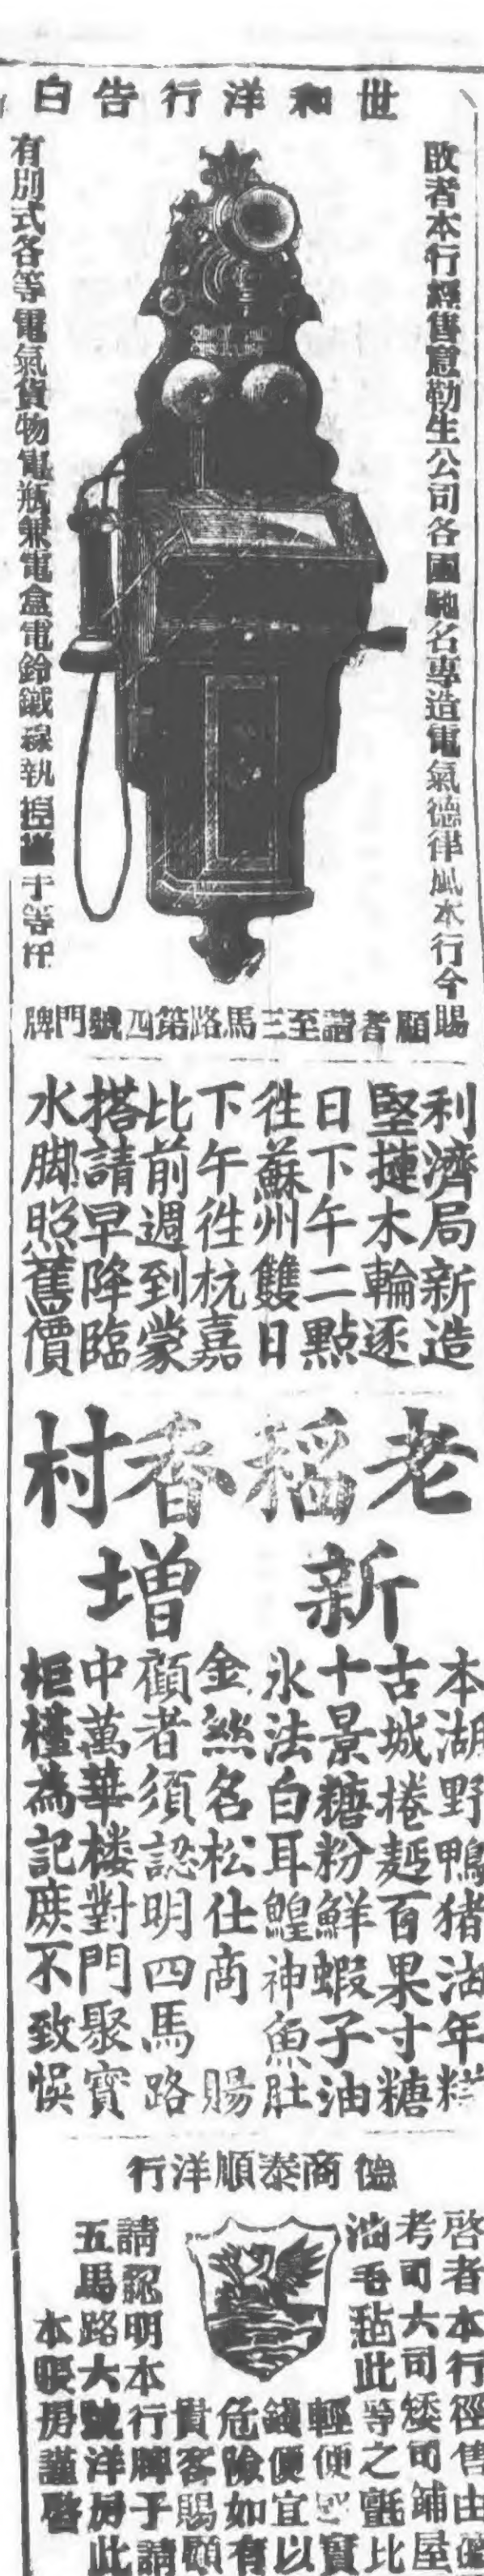 世和洋行告白
啟者本行經售意勒生公司各國馳名專造電氣德律風本行今
有別式各等電氣貨物電瓶兼電盒電鈴鐵線等任
賜顧者請至三馬路第四號門牌
利濟局新造
堅捷木輪逐
日下午二點
徃蘇州雙日
下午徃杭嘉
比前週到蒙
搭請早降臨
水脚照舊價
老稻香村
新增
本湖野鴨猪油年糕
古城捲麵百果寸糖
十景糖粉鮮蝦子油
氷法白耳鰉神魚肚
金煞名松仕商 賜
顧者須認明四馬路
中萬華楼對門聚寳
柜檯為記庶不致悞
德商泰順洋行
啓者本行經售由
考司大司矮司鋪屋
油毛毡此等之氈比
輕便 寳
錢便宜以
危險如有
貴客賜顧
請認明本行牌子請
五馬路大號洋房此
本賬房謹啓